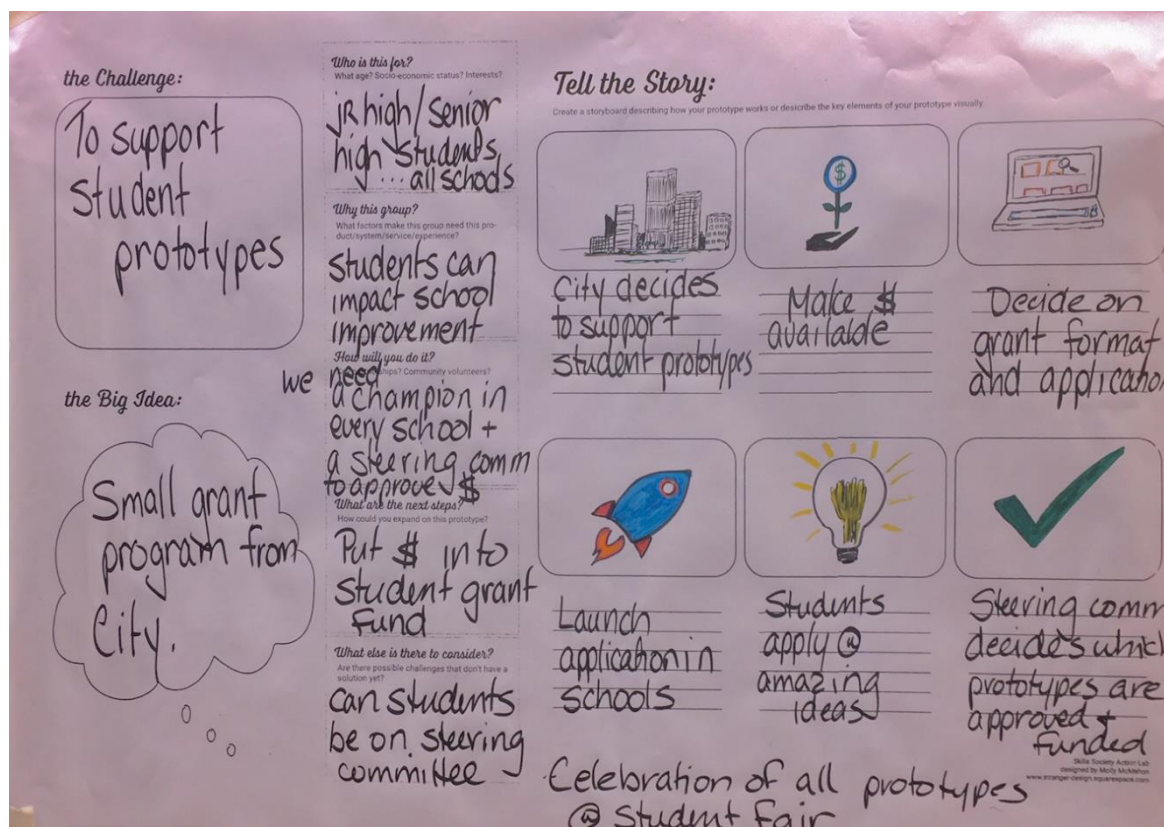 the Challenge:
To support
student
prototypes
the Big Idea:
Small grant
program from
City.
Who is this for?
What age? Socio-economic status? Interests?
jR high/senior
high students
... all schools
Why this group?
What factors make this group need this pro-
duct/system/service/experience?
students can
impact school
improvement
How will you do it?
we need
ships? Community volunteers?
a champion in
every school +
a steering comm
to approve $
What are the next steps?
How could you expand on this prototype?
Put $ into
student grant
Fund
What else is there to consider?
Are there possible challenges that don't have a
solution yet?
can students
be on steering
committee
Tell the Story:
Create a storyboard describing how your prototype works or desicribe the key elements of your prototype visually
City decides
to support
student prototypes
$
Make $
available
Decide on
grant format
and applicatio
Launch
application in
schools
Students
apply @
amazing
ideas
Steering comm
decides which
prototypes are
approved +
funded
Skills Society Action Lab
designed by Molly McMahon
www.stranger-design.squarespace.com
Celebration of all prototypes
@ Student Fair